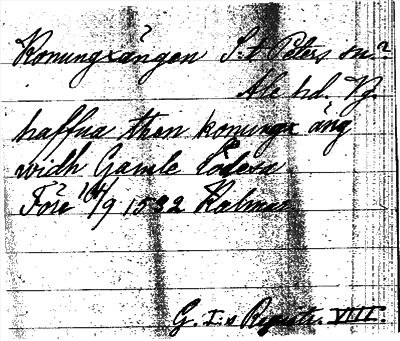 Konungxängen S:t Peters sn?
Ale hd. Vg
haffua then konunga äng
widh Gamle Lödesa
Före 14/9 1532 Kalmar
G. I:s Registr. VIII.